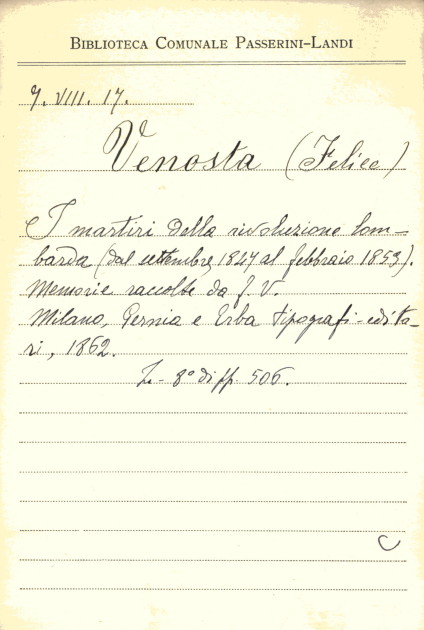 BIBLIOTECA COMUNALE PASSERINI-LANDI
7. VIII. 17.
Venosta (Felice)
I martiri della rivoluzione lom-
barda (dal settembre 1847 al febbraio 1853).
Memorie raccolte da F. V.
Milano, Gernia e Erba tipografi-edito-
ri, 1862.
8° di pp. 506.
C